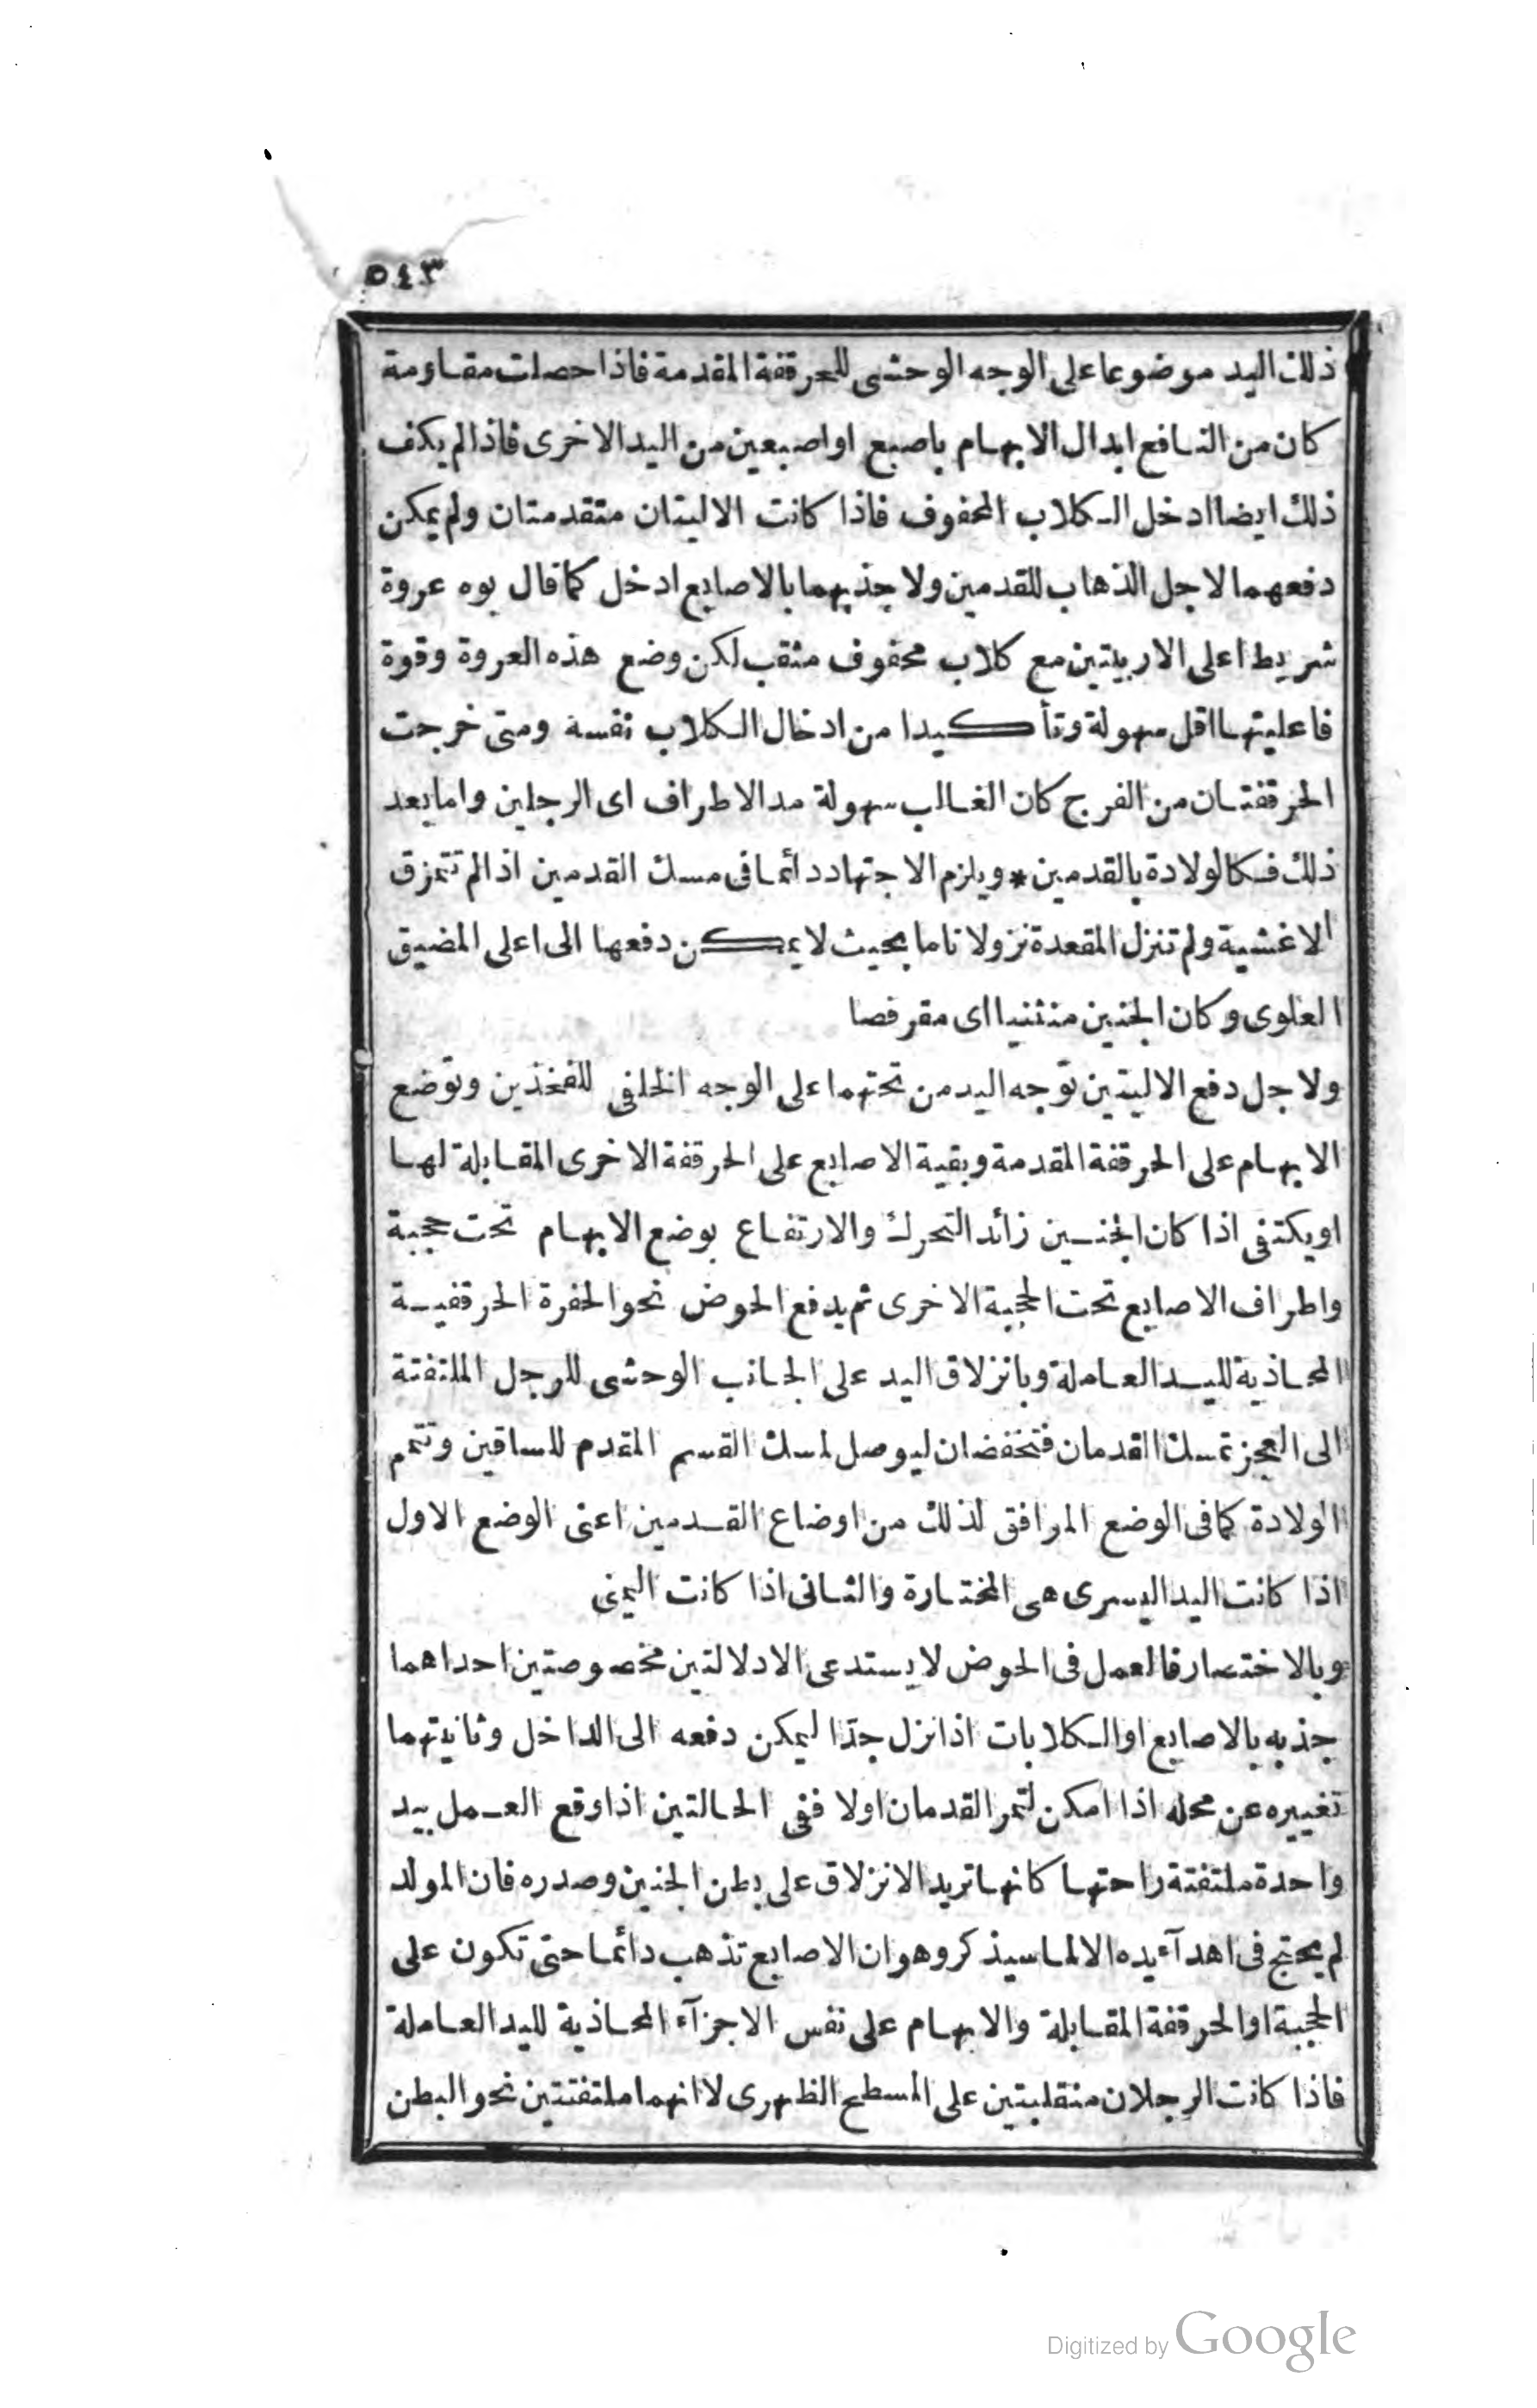 ٥٤٣
ذلك اليد موضوعا على الوجه الوحشى للحرقفة المقدمة فاذا حصلت مقاومة
كان من النافع ابدال الابهام باصبع او اصبعين من اليد الاخرى فاذا لم يكف
ذلك ايضا ادخل الكلاب المحفوف فاذا كانت الاليتان متقدمتان ولم يمكن
دفعهما لاجل الذهاب للقدمين ولا جذبهما بالاصابع ادخل كما قال بوه عروة
شريط اعلى الاربيتين مع كلاب محفوف مثقب لكن وضع هذه العروة وقوة
فاعليتها اقل سهولة وتأكيدا من ادخال الكلاب نفسه ومتى خرجت
الحرقفتان من الفرج كان الغالب سهولة مد الاطراف اى الرجلين واما بعد
ذلك فكالولادة بالقدمين * ويلزم الاجتهاد دائما فى مسك القدمين اذا لم تتمزق
الاغشية ولم تنزل المقعدة نزولا تاما بحيث لا يمكن دفعها الى اعلى المضيق
العلوى وكان الجنين منثنيا اى مقرفصا
ولاجل دفع الاليتين توجه اليد من تحتهما على الوجه الخلفى للفخذين وتوضع
الابهام على الحرقفة المقدمة وبقية الاصابع على الحرقفة الاخرى المقابلة لها
او يكتفى اذا كان الجنين زائد التحرك والارتفاع بوضع الابهام تحت حجبة
واطراف الاصابع تحت الحجبة الاخرى ثم يدفع الحوض نحو الحفرة الحرقفية
المحاذية لليد العاملة وبانزلاق اليد على الجانب الوحشى للرجل الملتفتة
الى العجز تمسك القدمان فتخفضان ليوصل لمسك القسم المقدم للساقين وتتمم
الولادة كما فى الوضع المرافق لذلك من اوضاع القدمين اعنى الوضع الاول
اذا كانت اليد اليسرى هى المختارة والثانى اذا كانت اليمنى
وبالاختصار فالعمل فى الحوض لا يستدعى الا دلالتين مخصوصتين احداهما
جذبه بالاصابع او الكلابات اذا نزل جدّا ليمكن دفعه الى الداخل وثانيتهما
تغييره عن محله اذا امكن لتمر القدمان اولا ففى الحالتين اذا وقع العمل بيد
واحدة ملتفتة راحتها كانها تريد الانزلاق على بطن الجنين وصدره فان المولد
لم يحتج فى اهدآء يده الا لما سيذكر وهو ان الاصابع تذهب دائما حتى تكون على
الحجبة او الحرقفة المقابلة والابهام على نفس الاجزآء المحاذية لليد العاملة
فاذا كانت الرجلان منقلبتين على المسطح الظهرى لا انهما ملتفتتين نحو البطن
Digitized by Google